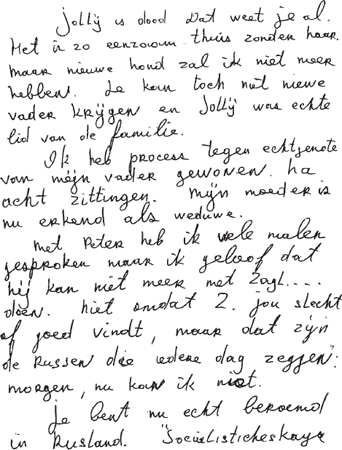 Jollÿ is dood Dat weet je al.
Het is zo eenzaam thuis zonder haar.
maar nieuwe hond zal ik niet meer
hebben. Je kan toch niet niewe
vader krÿgen en Jollÿ was echte
lid van de familie.
Ik heb process tegen echtgenote
van mÿn vader gewonen. ha
acht zittingen. Mÿn moeder is
nu erkend als weduwe.
Met Peter heb ik vele malen
gesproken maar ik geloof dat
hÿ kan niet meer met Zagl....
doen. Niet omdat Z. jou slecht
of goed vindt, maar dat zÿn
de Russen die iedere dag zeggen:
morgen, nu kan ik niet.
Je bent nu echt beroemd
in Rusland. "Socialisticheskaya